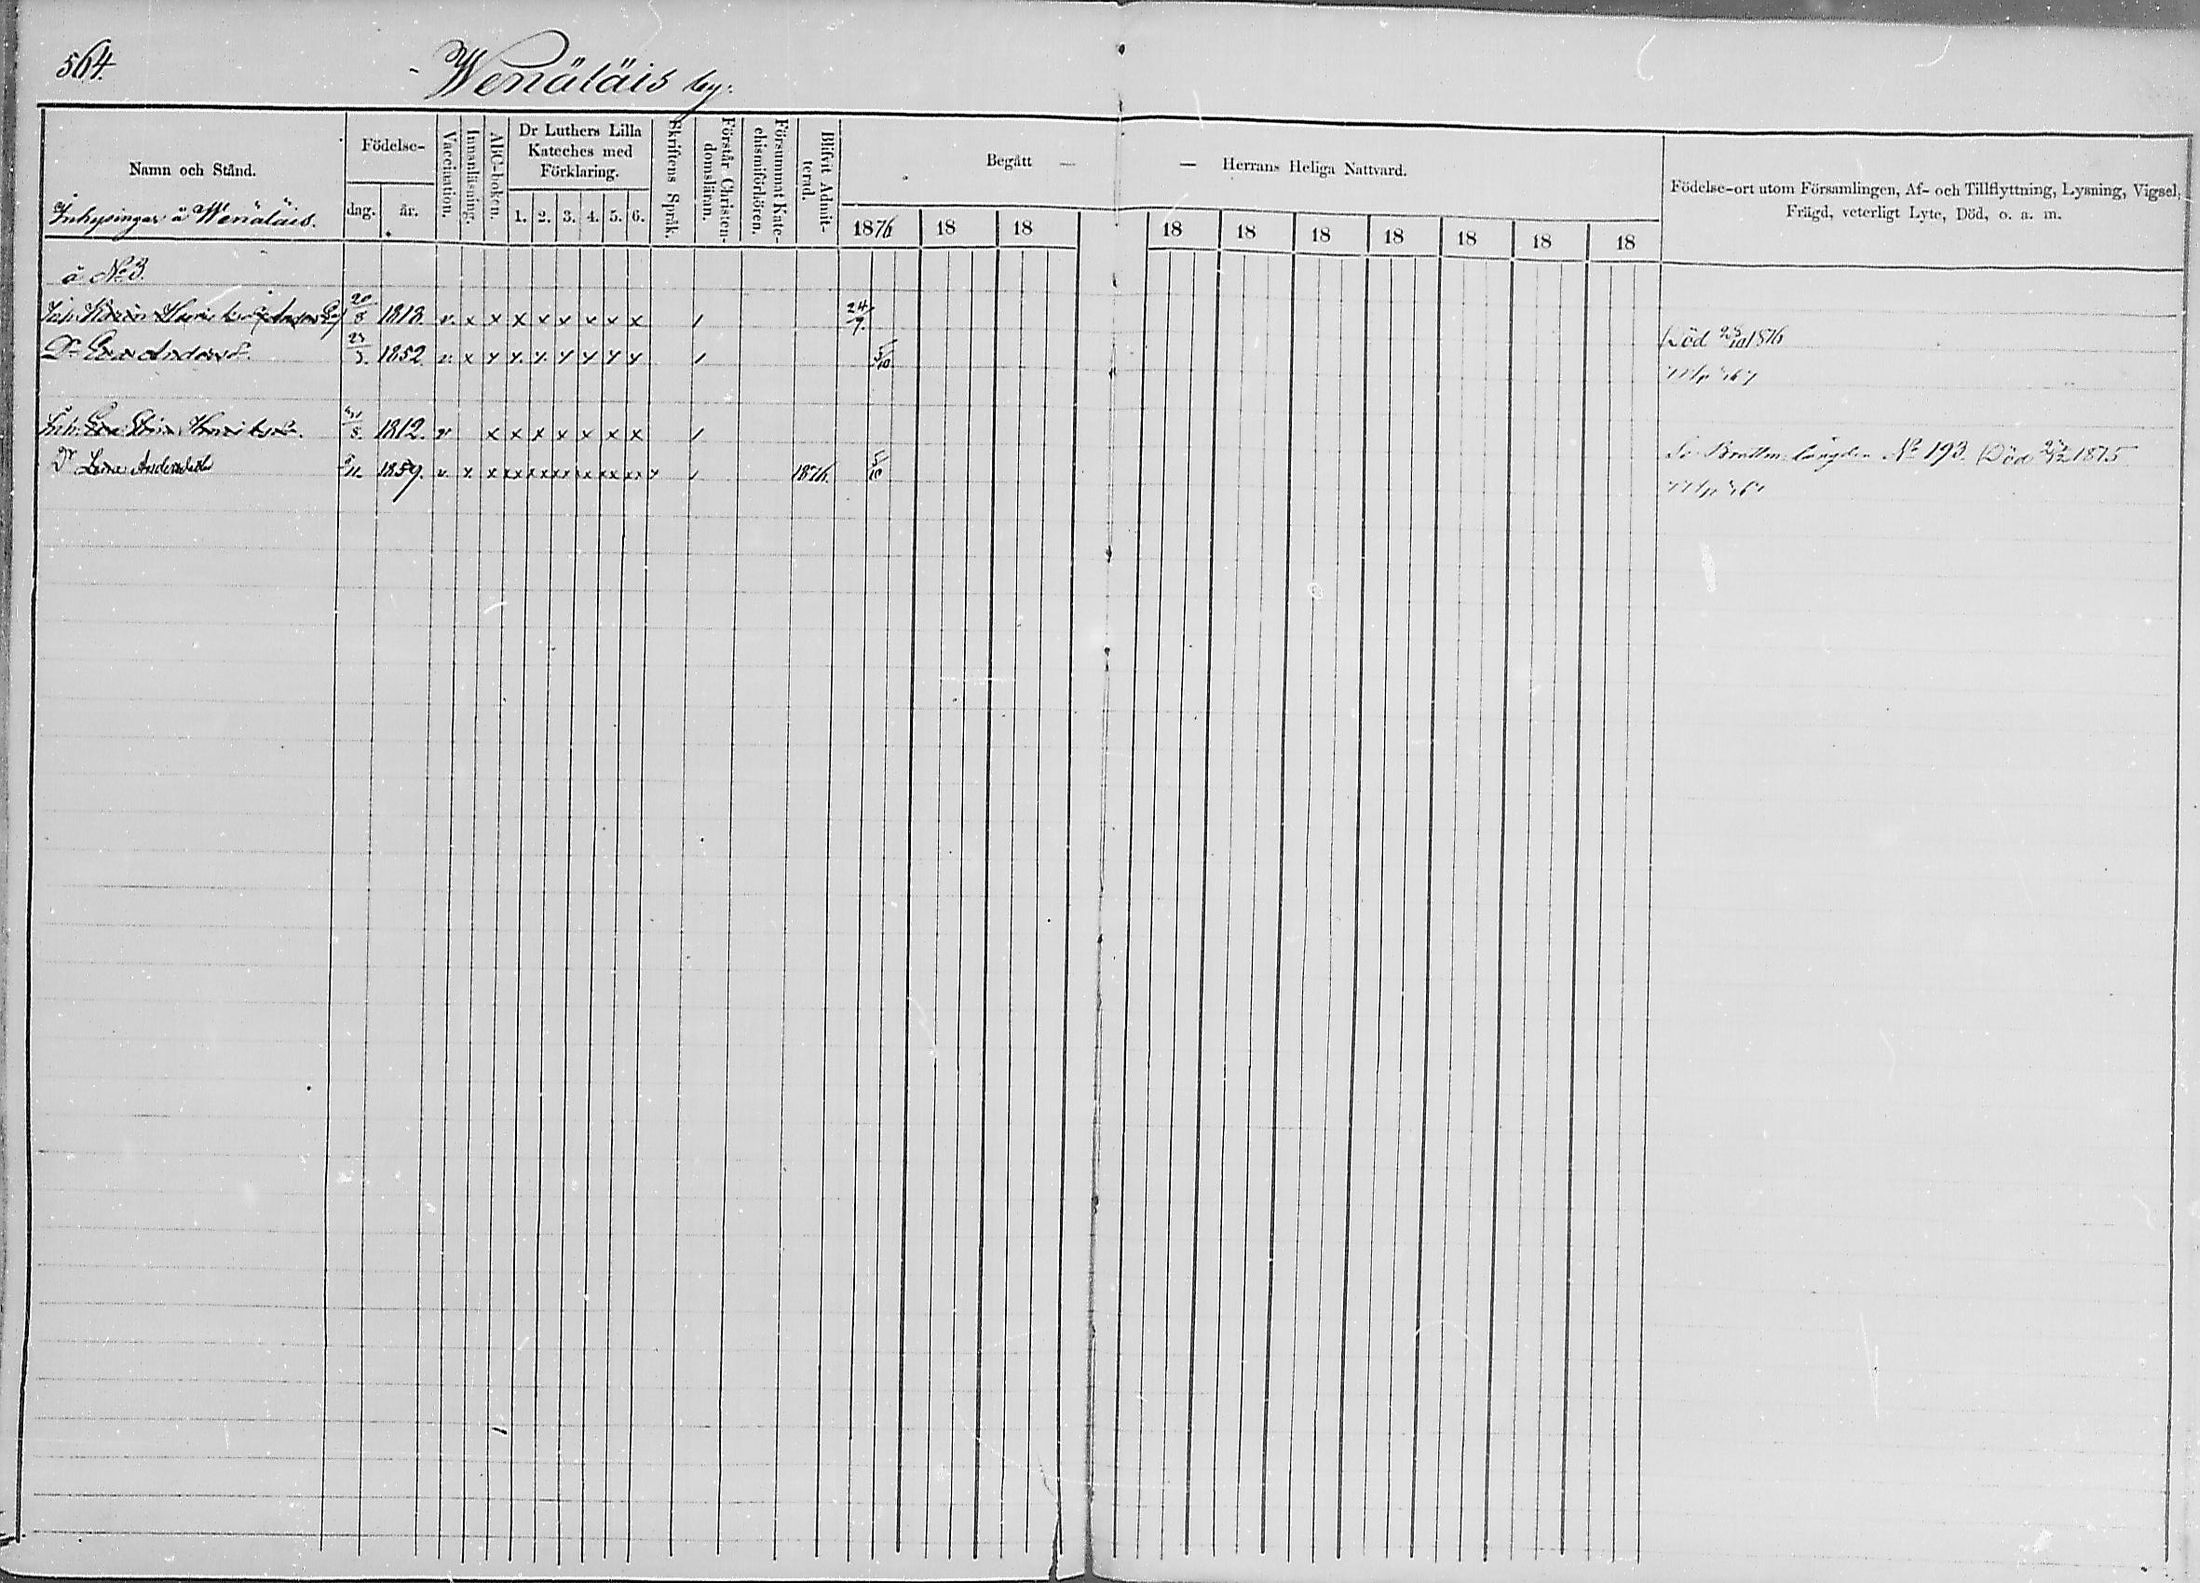 564.
Wenäläis by.
Namn och Stånd.
Inhysingar å Wenäläis.
Födelse-
dag. år.
Vaccination.
Innanläsning.
ABC-boken.
Dr Luthers Lilla
Kateches med
Förklaring.
1. 2. 3. 4. 5. 6.
Skriftens Språk.
Förstår Christen-
domsläran.
Försummat Kate-
chismiförhören.
Blifvit Admit-
terad.
Begått —
— Herrans Heliga Nattvard.
1876 18 18 18 18 18 18 18 18 18
Födelse-ort utom Församlingen, Af- och Tillflyttning, Lysning, Vigsel,
Frägd, veterligt Lyte, Död, o. a. m.
å No 3.
Inh. 20/8 1818. v. x x x x x x x x / 24/9. Död 1876
Dr 23/3. 1852. v. x x x x x x x x / 5/10
Inh. 1812. v x x x x x x x / No 193. Död 1875
Dr Lena Andersdotter 1859. v. x x xx xx xx xx xx xx / 1876. 5/10